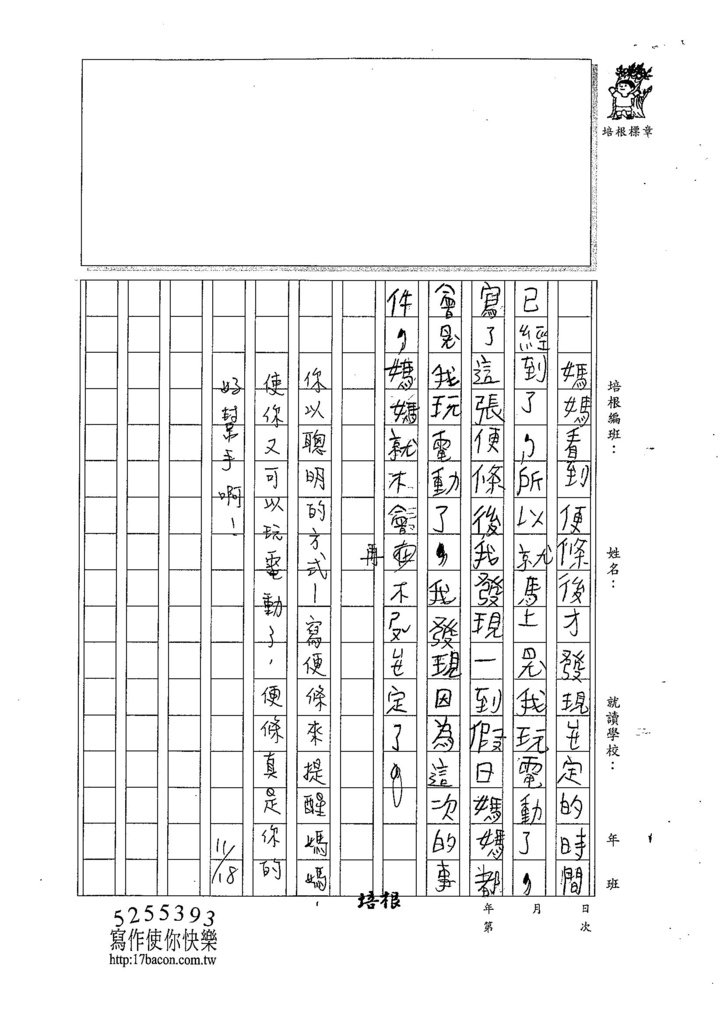 培根標章
培根編班：
姓名：
就讀學校：
年 班
媽媽看到便條後才發現定的時間
已經到了，所以就馬上我玩電動了，
寫了這張便條後我發現一到假日媽媽都
會我玩電動了，我發現因為這次的事
件，媽媽就不會不定了。
再
你以聰明的方式—寫便條來提醒媽媽，
使你又可以玩電動了，便條真是你的
好幫手啊！
11/18
年 月 日
第 次
培根
5255393
寫作使你快樂
http:17bacon.com.tw